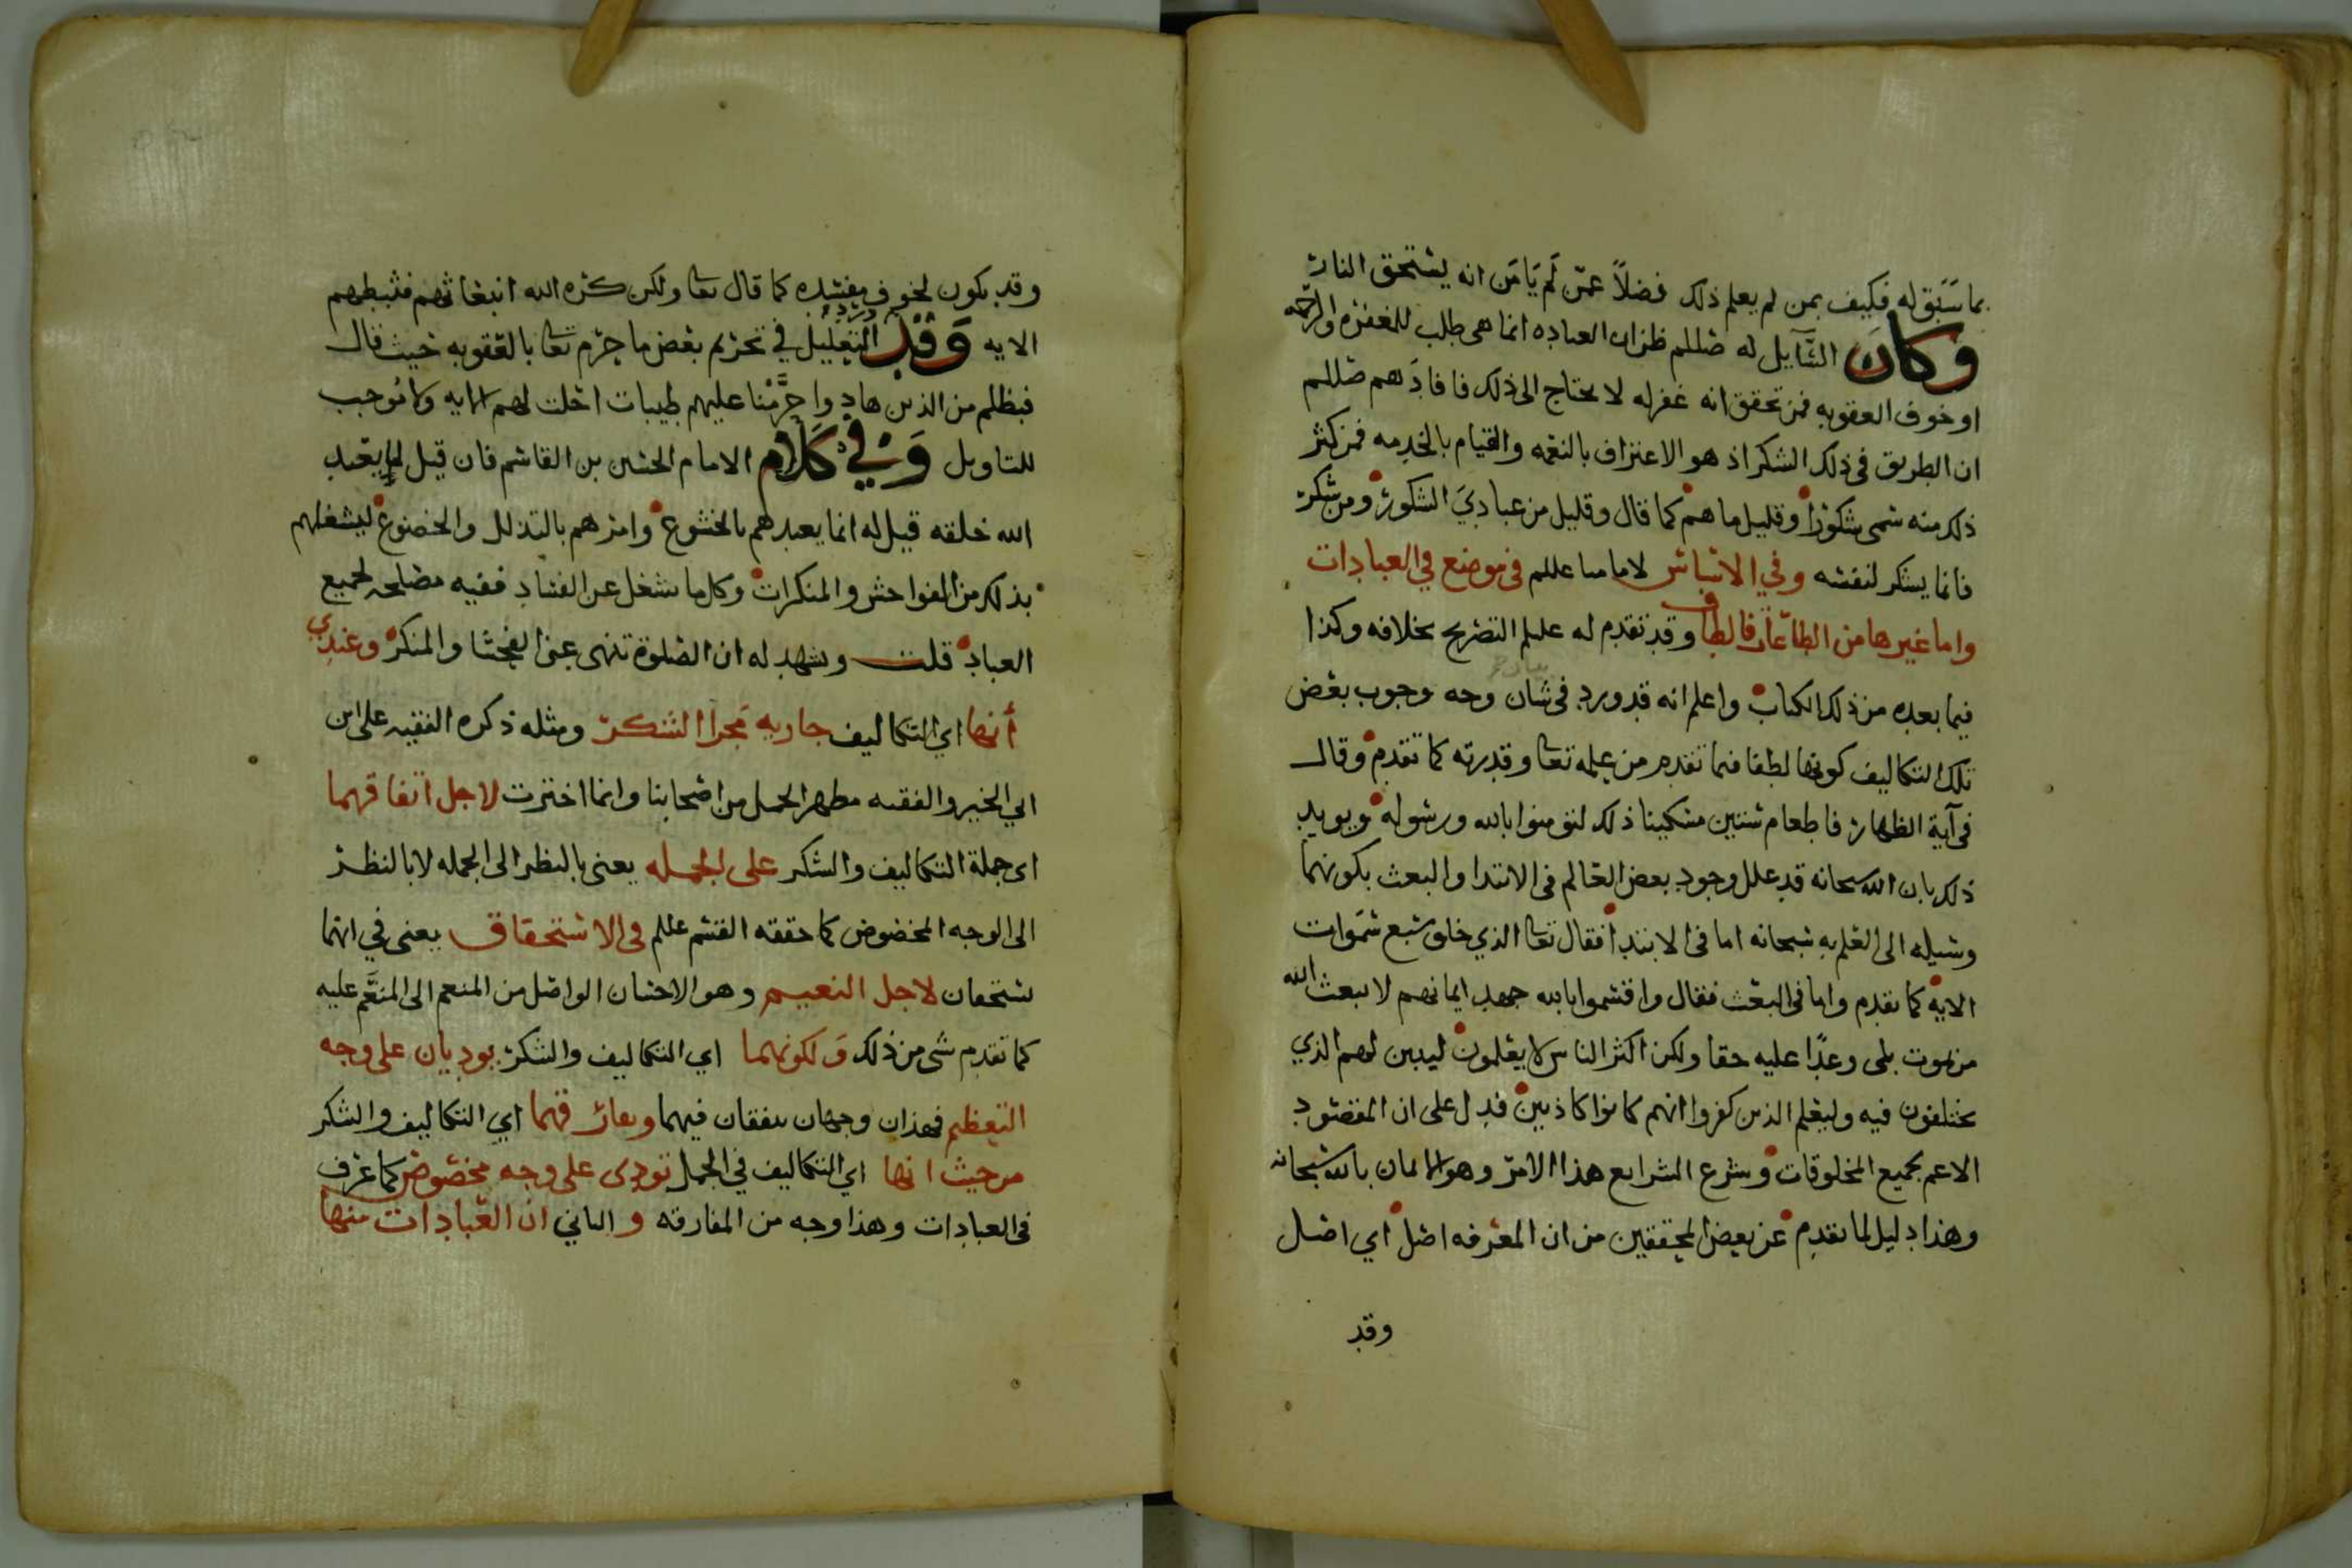 بما سبق له فكيف بمن لم يعلم ذلك فضلاً عمّن لم يَامَن انه يستحق النار
وكان السَّآيل له صللم ظن ان العباده انما هى طلب للمغفره والرحمه
او خوف العقوبه فمن تحقق انه غفر له لا يحتاج الى ذلك فافادَهم صللم
ان الطريق فى ذلك الشكر اذ هو الاعتراف بالنعمه والقيام بالخدمه فمن كثر
ذلك منه سمى شكورًا وقليل ما هم كما قال وقليل من عباديَ الشكور ومن شكر
فانما يشكر لنفسه وفي الاساس لامامنا عللم فى موضع في العبادات
واما غيرها من الطاعات فالطاف وقد تقدم له عللم التصريح بخلافه وكذا
فيما بعده من ذلك الكتاب واعلم انه قد ورد فى شان وجه وجوب بعض
تلك التكاليف كونها لطفا فيما تقدم من علمه تعا وقدرته كما تقدم وقال
فى آية الظهار فاطعام ستين مسكينا ذلك لتؤمنوا بالله ورسوله ويويد
ذلك بان الله سبحانه قد علل وجود بعض العالم فى الابتدا والبعث بكونهما
وسيله الى العلم به سبحانه اما فى الابتدا فقال تعا الذي خلق سبع سَموات
الايه كما تقدم واما فى البعث فقال واقسموا بالله جهد ايمانهم لا يبعث الله
من يموت بلى وعدًا عليه حقا ولكن اكثر الناس لا يعلمون ليبين لهم الذي
يختلفون فيه وليعلم الذين كفروا انهم كانوا كاذبين فدل على ان المقصود
الاعم بجميع المخلوقات وشرع الشرايع هذا الامر وهو الايمان بالله سبحانه
وهذا دليل لما تقدم عن بعض المحققين من ان المعرفه اصل اي اصل
وقد
وقد يكون لخوف مفسده كما قال تعا ولكن كره الله انبعاثهم فثبطهم
الايه وَقد ورد التعليل في تحريم بعض ما حرم تعا بالعقوبه حيث قال
فبظلم من الذين هادوا حرَّمْنا عليهم طيبات احلت لهم الايه ولا مُوجب
للتاويل وَفي كَلام الامام الحسين بن القاسم فان قيل لم يعبد
الله خلقه قيل له انما يعبدهم بالخشوع وامرهم بالتذلل والخضوع ليشغلهم
بذلك من الفواحش والمنكرات وكل ما شغل عن الفساد ففيه مصلحه لجميع
العباد قلت ويشهد له ان الصلوة تنهى عن الفحشا والمنكر وعندي
أنها اي التكاليف جاريه مَجرا الشكر ومثله ذكره الفقيه على ابن
ابي الخير والفقيه مطهر الجمل من اصحابنا وانما اخترت لاجل اتفاقهما
اى جملة التكاليف والشكر على الجمله يعنى بالنظر الى الجمله لا بالنظر
الى الوجه المخصوص كما حققه القسم عللم فى الاستحقاق يعنى في انهما
يستحقان لاجل النعيم وهو الاحسان الواصل من المنعم الى المنعَّم عليه
كما تقدم شى من ذلك وَلكونهما اي التكاليف والشكر يوديان على وجه
التعظيم فهذان وجهان يتفقان فيهما وبفارقهما اي التكاليف والشكر
من حيث انها اي التكاليف في الجمل تودى على وجه مخصوص كما عرف
فى العبادات وهذا وجه من المفارقه والثاني ان العبادات منها